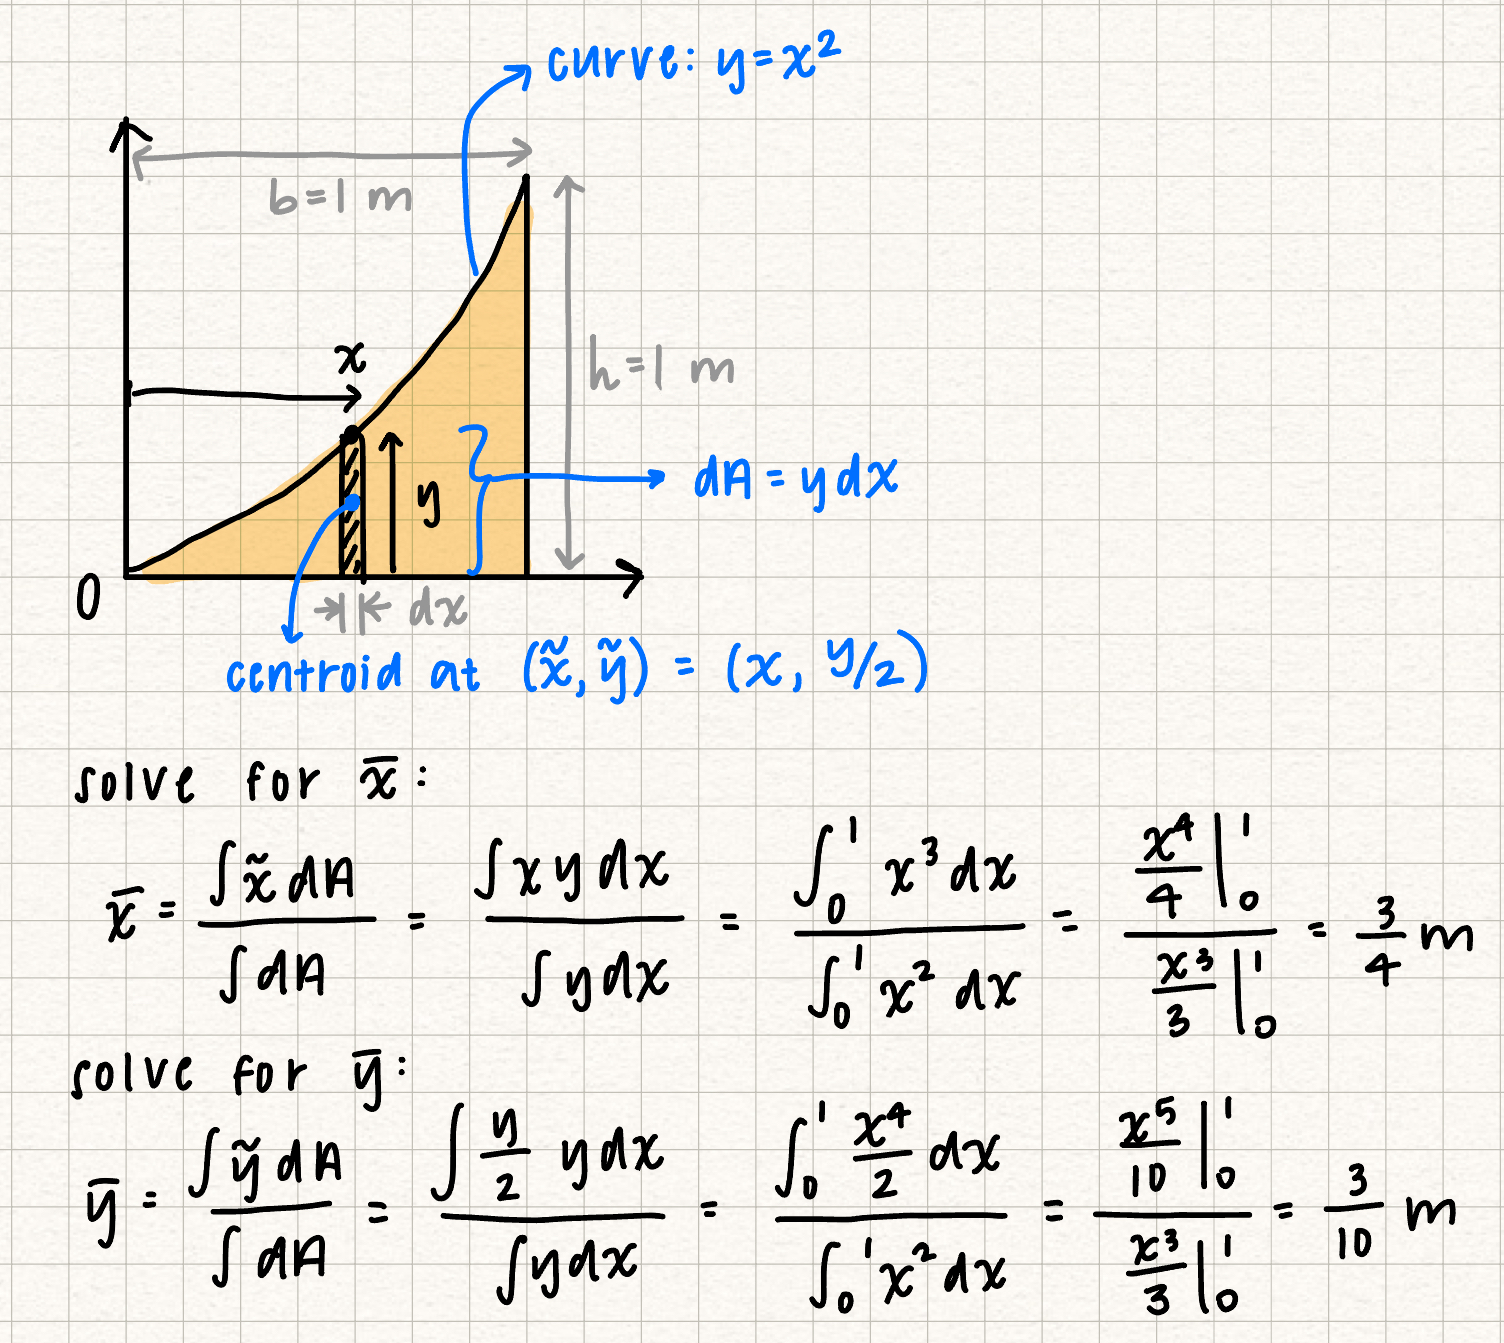 curve: y=x²
b=1 m
x
h=1 m
y
dA = y dx
0
dx
centroid at (x̃, ỹ) = (x, y/2)
solve for x̄:
x̄ = ∫x̃ dA / ∫dA = ∫x y dx / ∫y dx = ∫₀¹ x³ dx / ∫₀¹ x² dx = x⁴/4 |₀¹ / x³/3 |₀¹ = 3/4 m
solve for ȳ:
ȳ = ∫ỹ dA / ∫dA = ∫ y/2 y dx / ∫y dx = ∫₀¹ x⁴/2 dx / ∫₀¹ x² dx = x⁵/10 |₀¹ / x³/3 |₀¹ = 3/10 m